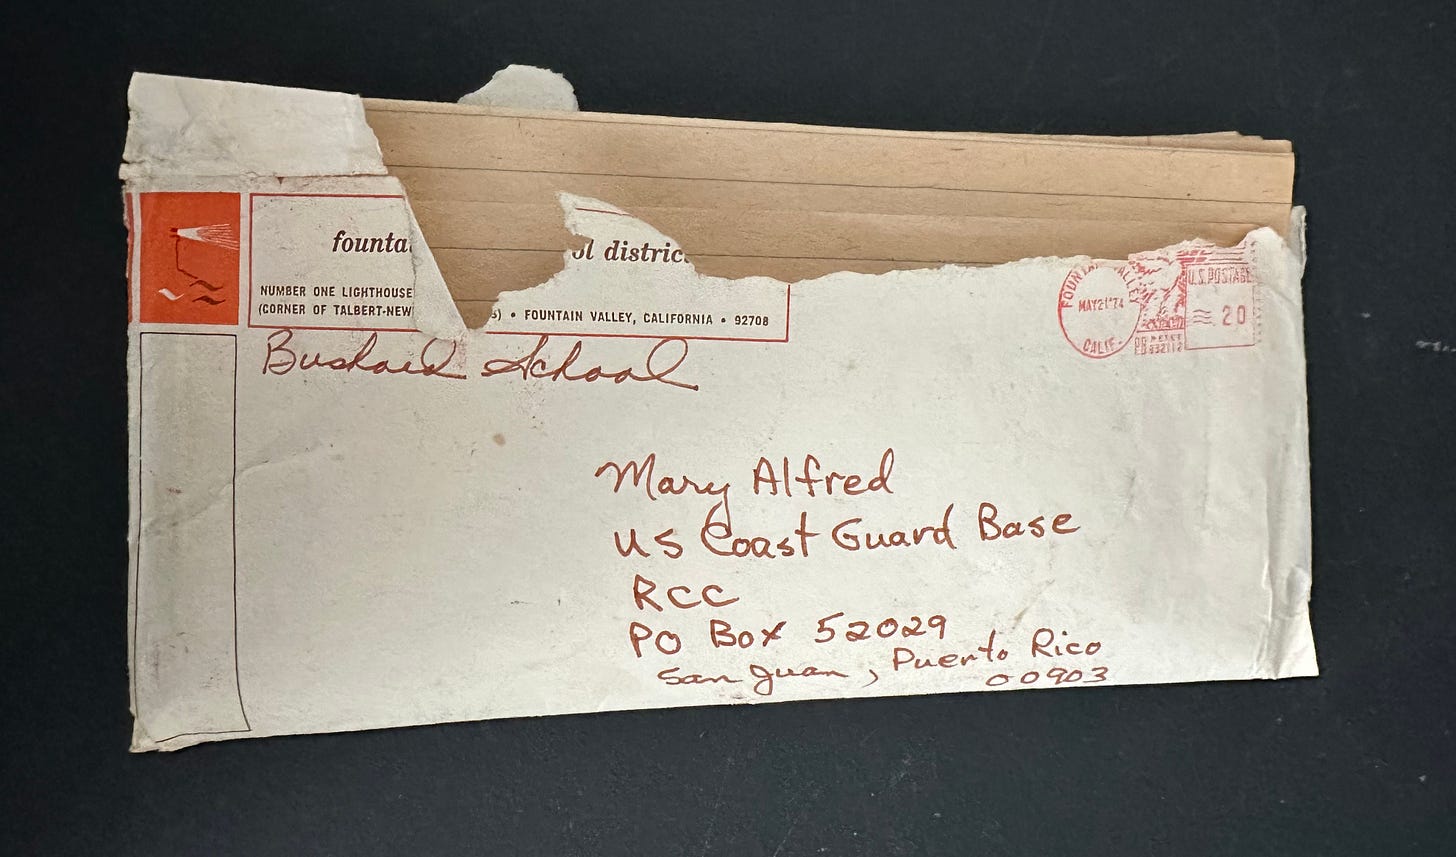 founta ol distric
NUMBER ONE LIGHTHOUSE
(CORNER OF TALBERT-NEW S) • FOUNTAIN VALLEY, CALIFORNIA • 92708
Bushard School
FOUNTAIN VALLEY
MAY21'74
CALIF.
U.S. POSTAGE
20
Mary Alfred
US Coast Guard Base
RCC
PO Box 52029
San Juan, Puerto Rico
00903